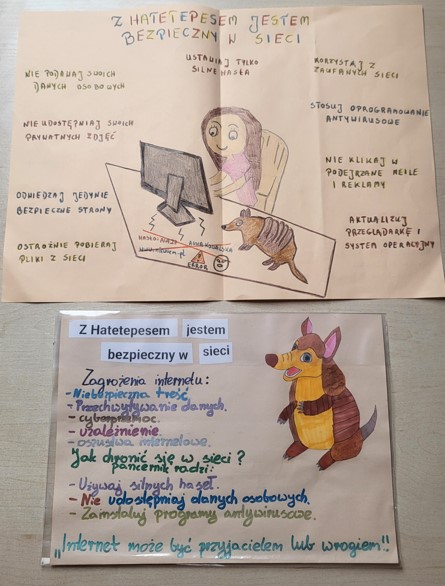 Z HATETEPESEM JESTEM
BEZPIECZNY W SIECI
NIE PODAWAJ SWOICH
DANYCH OSOBOWYCH
NIE UDOSTĘPNIAJ SWOICH
PRYWATNYCH ZDJĘĆ
ODWIEDZAJ JEDYNIE
BEZPIECZNE STRONY
OSTROŻNIE POBIERAJ
PLIKI Z SIECI
USTAWIAJ TYLKO
SILNE HASŁA
KORZYSTAJ Z
ZAUFANYCH SIECI
STOSUJ OPROGRAMOWANIE
ANTYWIRUSOWE
NIE KLIKAJ W
PODEJRZANE MEILE
I REKLAMY
AKTUALIZUJ
PRZEGLĄDARKĘ I
SYSTEM OPERACYJNY
ERROR
Z Hatetepesem jestem
bezpieczny w sieci
Zagrożenia internetu:
- Niebezpieczna treść,
- Przechwytywanie danych.
- cyberprzemoc.
- uzależnienie.
- oszustwa internetowe.
Jak chronić się w sieci?
pancernik radzi:
- Używaj silnych haseł.
- Nie udostępniaj danych osobowych.
- Zainstaluj programy antywirusowe.
„Internet może być przyjacielem lub wrogiem"!